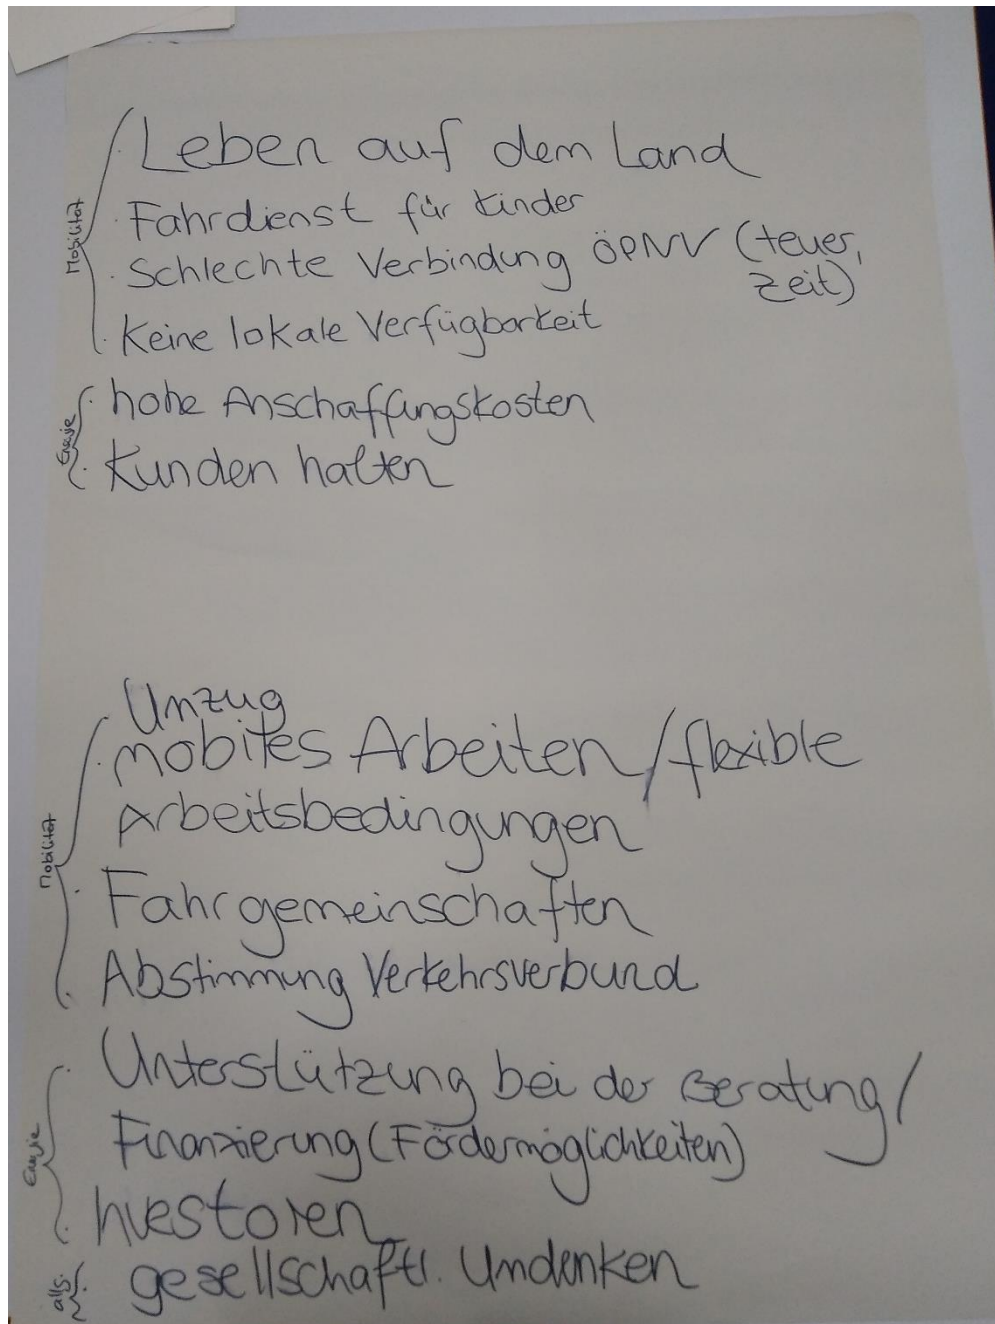 Mobilität
Leben auf dem Land
· Fahrdienst für Kinder
· Schlechte Verbindung ÖPNV (teuer,
Zeit)
· Keine lokale Verfügbarkeit
Energie
· hohe Anschaffungskosten
· Kunden halten
Mobilität
· Umzug
· mobiles Arbeiten/flexible
Arbeitsbedingungen
· Fahrgemeinschaften
· Abstimmung Verkehrsverbund
Energie
· Unterstützung bei der Beratung/
Finanzierung (Fördermöglichkeiten)
· Investoren
allg.
· gesellschaftl. Umdenken